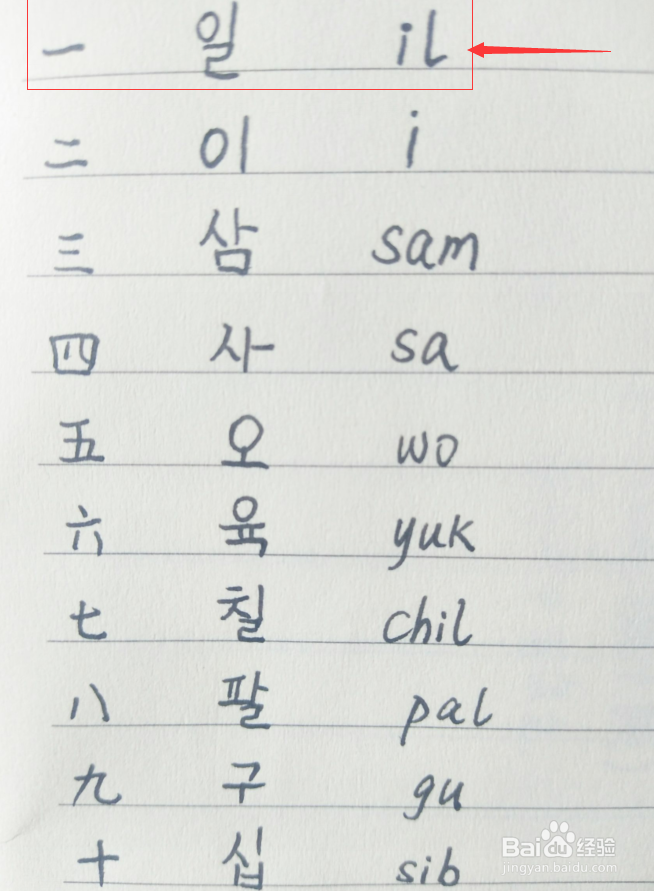 一 일 il
二 이 i
三 삼 sam
四 사 sa
五 오 wo
六 육 yuk
七 칠 chil
八 팔 pal
九 구 gu
十 십 sib
Baidu 经验
jingyan.baidu.com